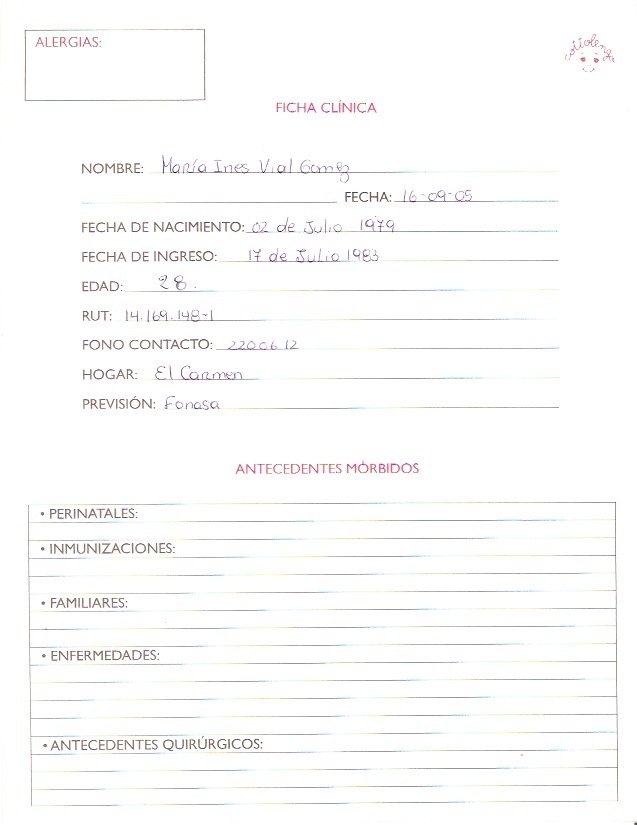 ALERGIAS:
cottolengo
FICHA CLÍNICA
NOMBRE: María Ines Vial Gomez
FECHA: 16-09-05
FECHA DE NACIMIENTO: 02 de Julio 1979
FECHA DE INGRESO: 17 de Julio 1983
EDAD: 28.
RUT: 14.169.148-1
FONO CONTACTO: 2200612
HOGAR: El Carmen
PREVISIÓN: Fonasa
ANTECEDENTES MÓRBIDOS
• PERINATALES:
• INMUNIZACIONES:
• FAMILIARES:
• ENFERMEDADES:
• ANTECEDENTES QUIRÚRGICOS: